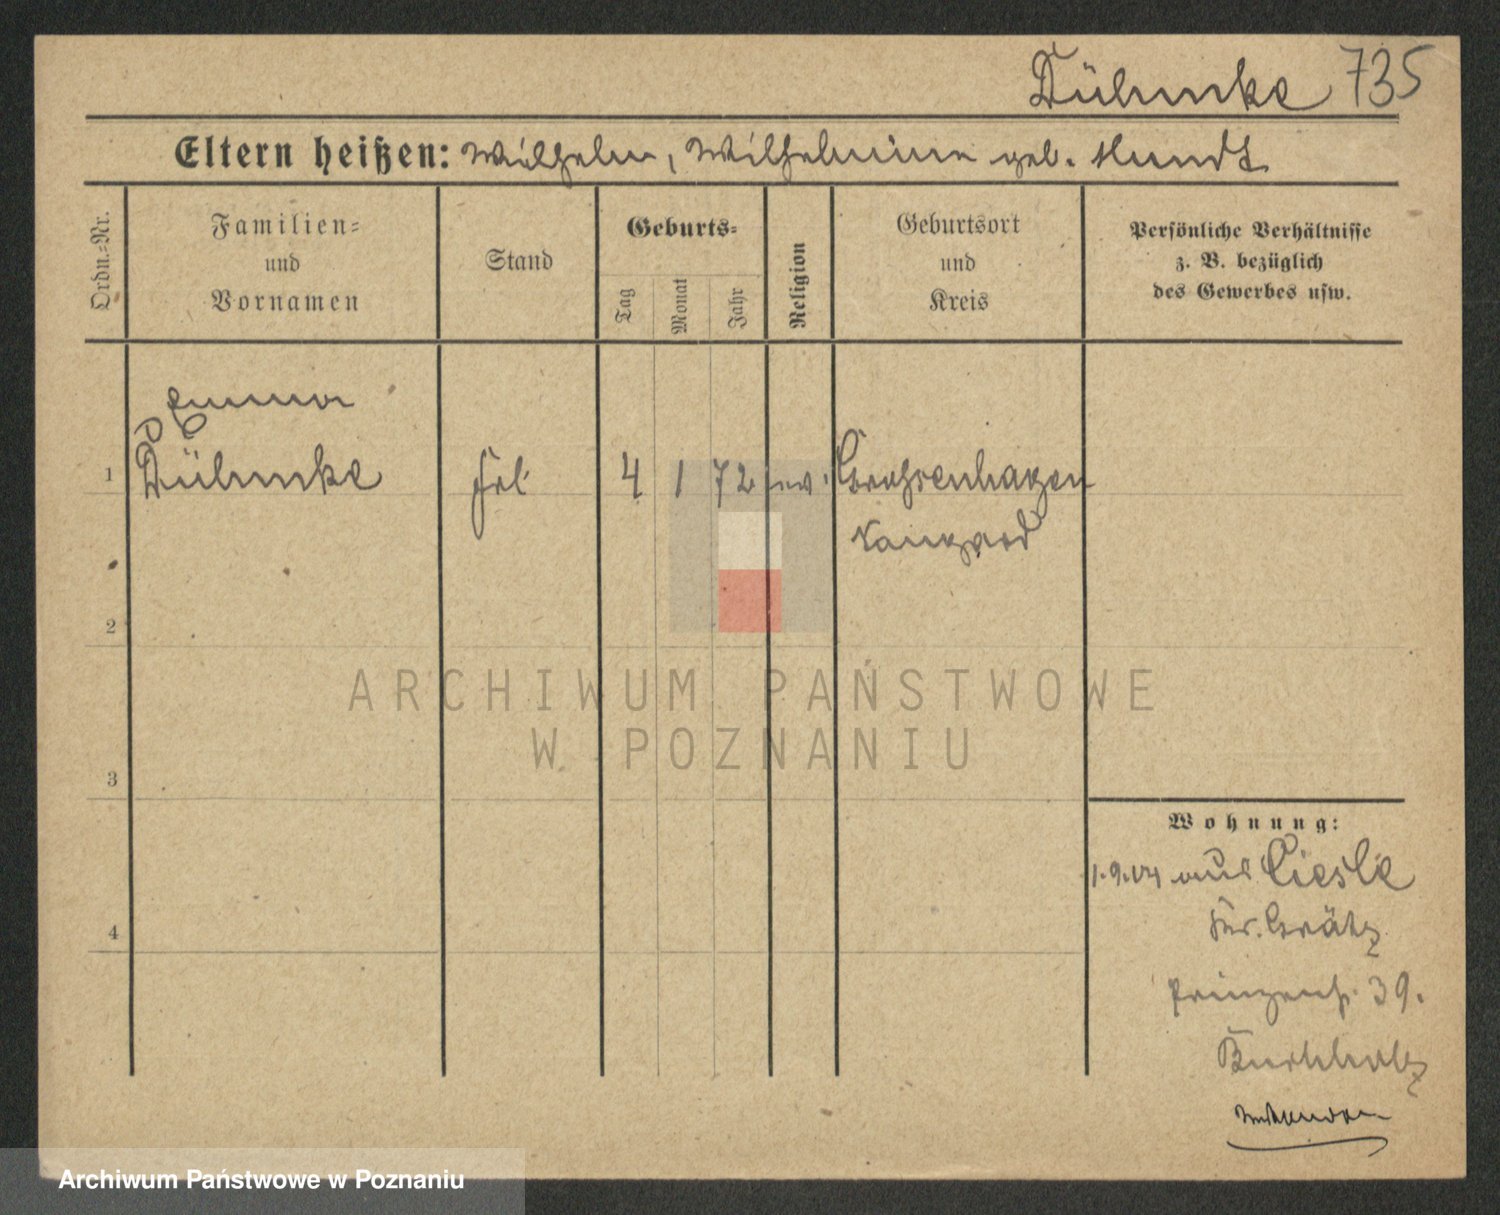 Dühmke 735
Eltern heißen: Wilhelm, Wilhelmine geb. Hundt
Ordn.-Nr.
Familien-
und
Vornamen
Stand
Geburts-
Tag
Monat
Jahr
Religion
Geburtsort
und
Kreis
Persönliche Verhältnisse
z. B. bezüglich
des Gewerbes usw.
Emma
1 Dühmke Frl. 4 1 72 ev. Grossenhagen
Naugard
2
ARCHIWUM PAŃSTWOWE
W POZNANIU
3
Wohnung:
1.9.04 aus Ciesle
Kr. Grätz
4
Prinzenstr. 39.
Buchholz
Archiwum Państwowe w Poznaniu